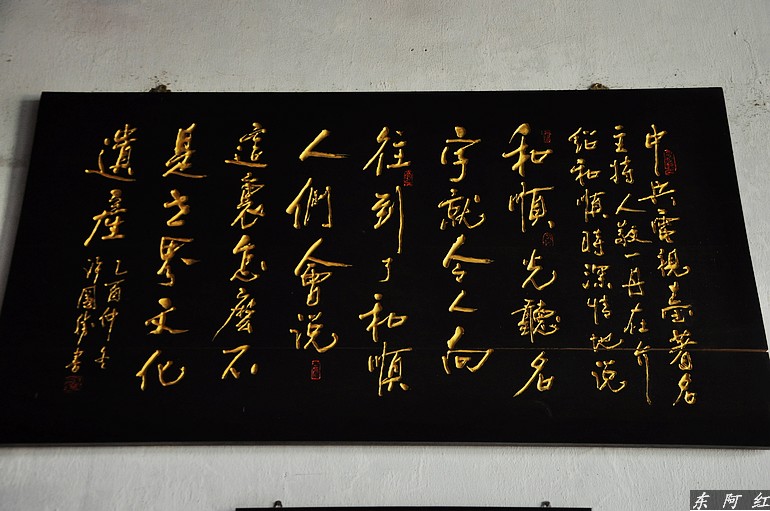 中央電視臺著名
主持人敬一丹在介
紹和順時深情地说
和順光聽名
字就令人向
往到了和順
人們會说
這裏怎麽不
是世界文化
遺産
乙酉仲冬
許國勝书
东阿红